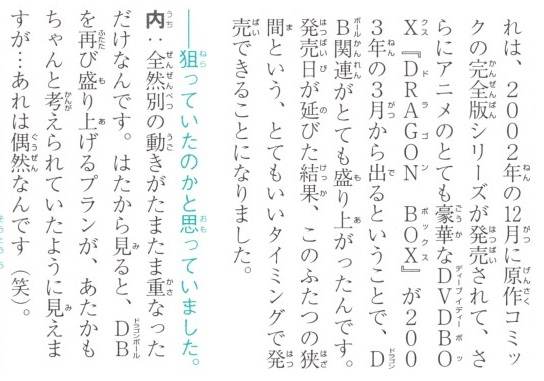 れは、2002年の12月に原作コミッ
クの完全版シリーズが発売されて、さ
らにアニメのとても豪華なDVDBO
X『DRAGON BOX』が200
3年の3月から出るということで、D
B関連がとても盛り上がったんです。
発売日が延びた結果、このふたつの狭
間という、とてもいいタイミングで発
売できることになりました。
──狙っていたのかと思っていました。
内：全然別の動きがたまたま重なった
だけなんです。はたから見ると、DB
を再び盛り上げるプランが、あたかも
ちゃんと考えられていたように見えま
すが…あれは偶然なんです（笑）。